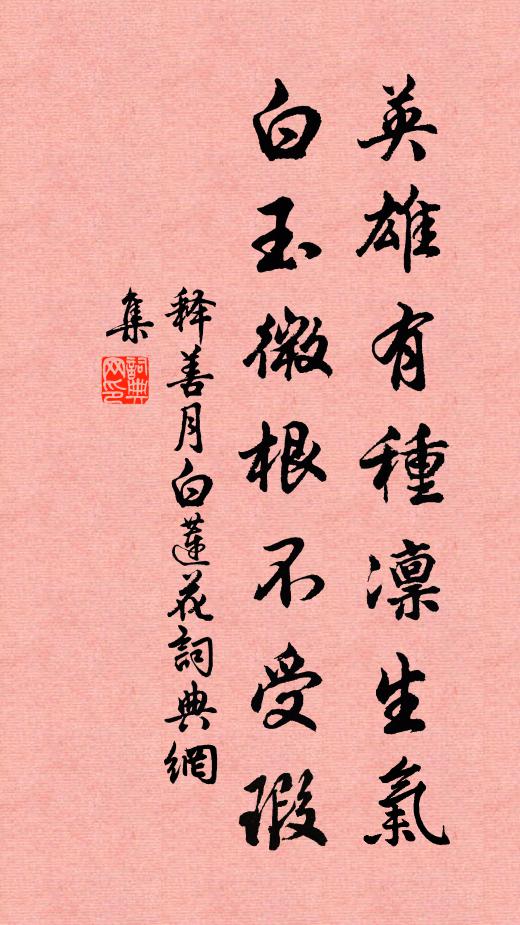 英雄有種凛生氣
白玉微根不受瑕
释善月白蓮花詞典網
集
詞典網印